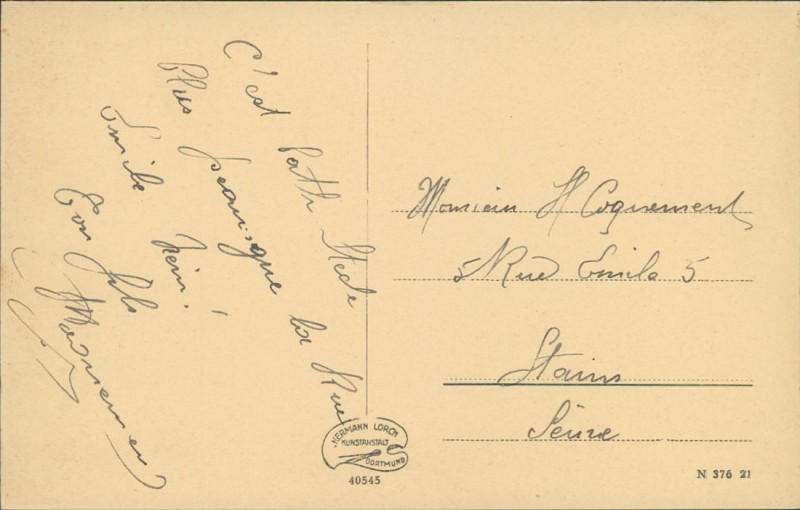 C'est
Plus beau que la Rue
Emile hein!
Ton fils
Monsieur H Coquement
5 Rue Emile 5
Stains
Seine
HERMANN LORCH
KUNSTANSTALT
DORTMUND
40545
N 376 21